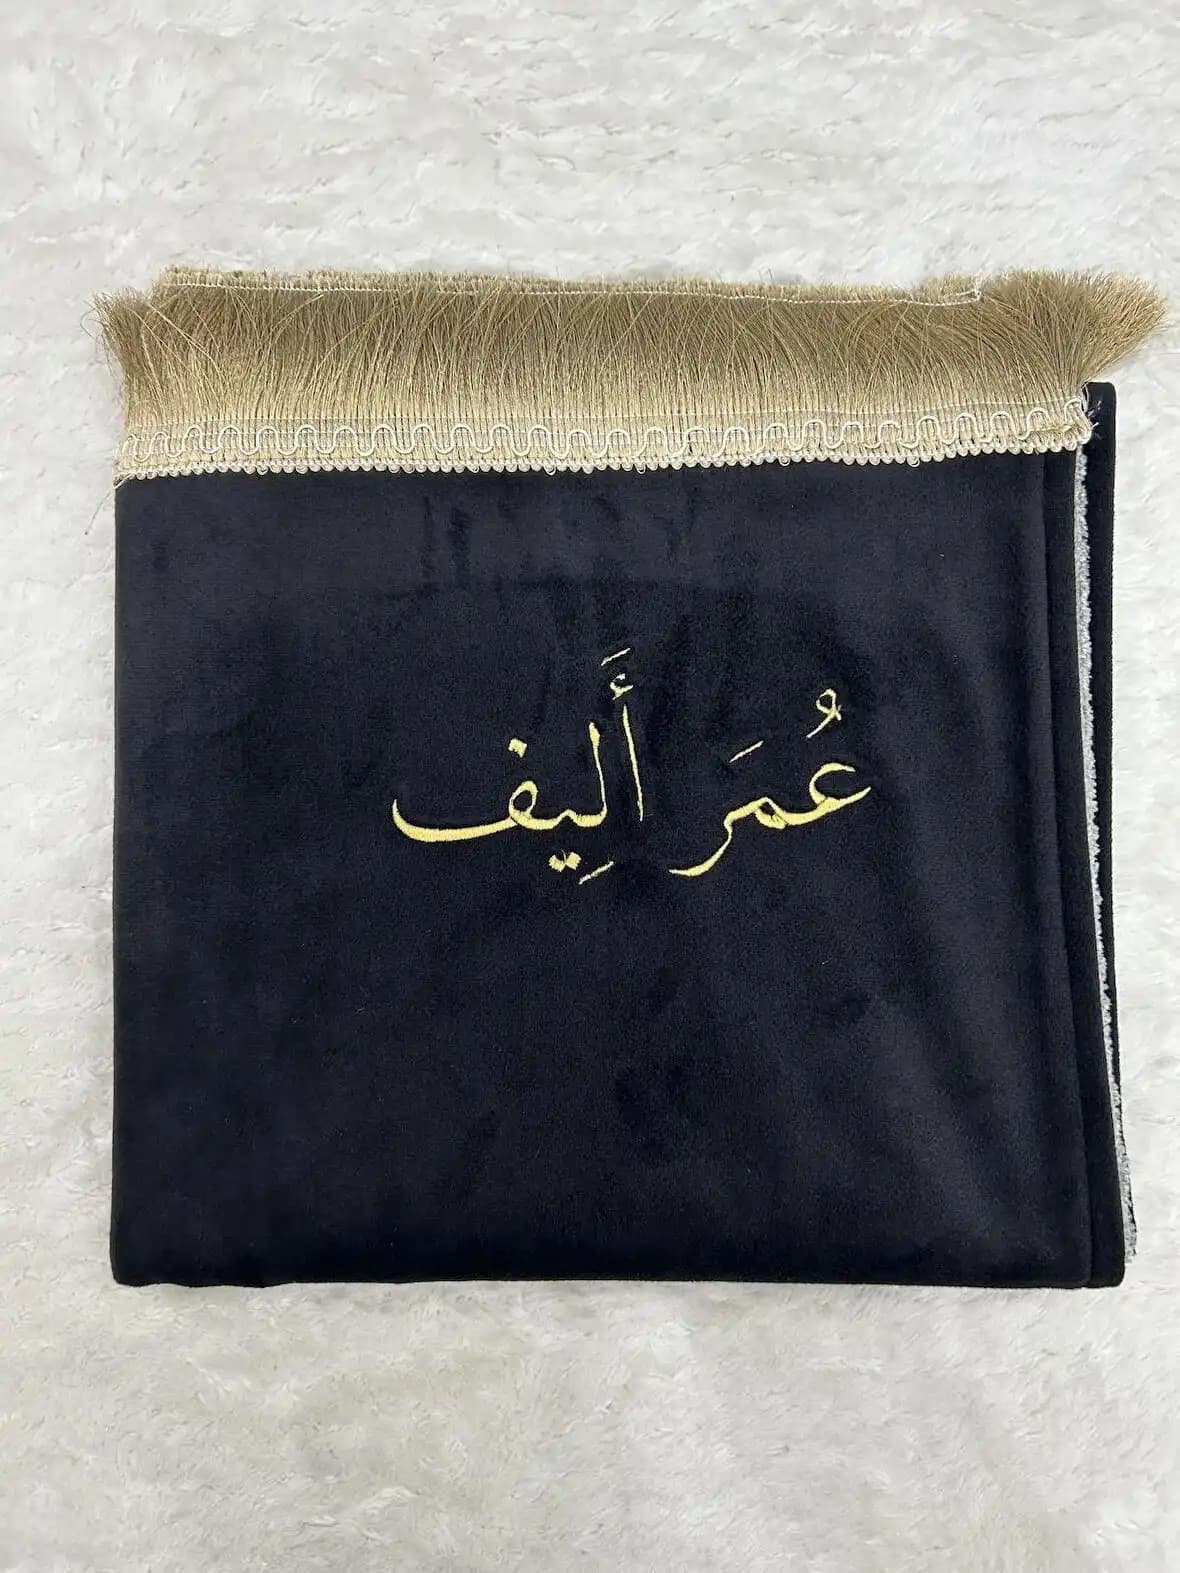 عُمَر أَلِيف